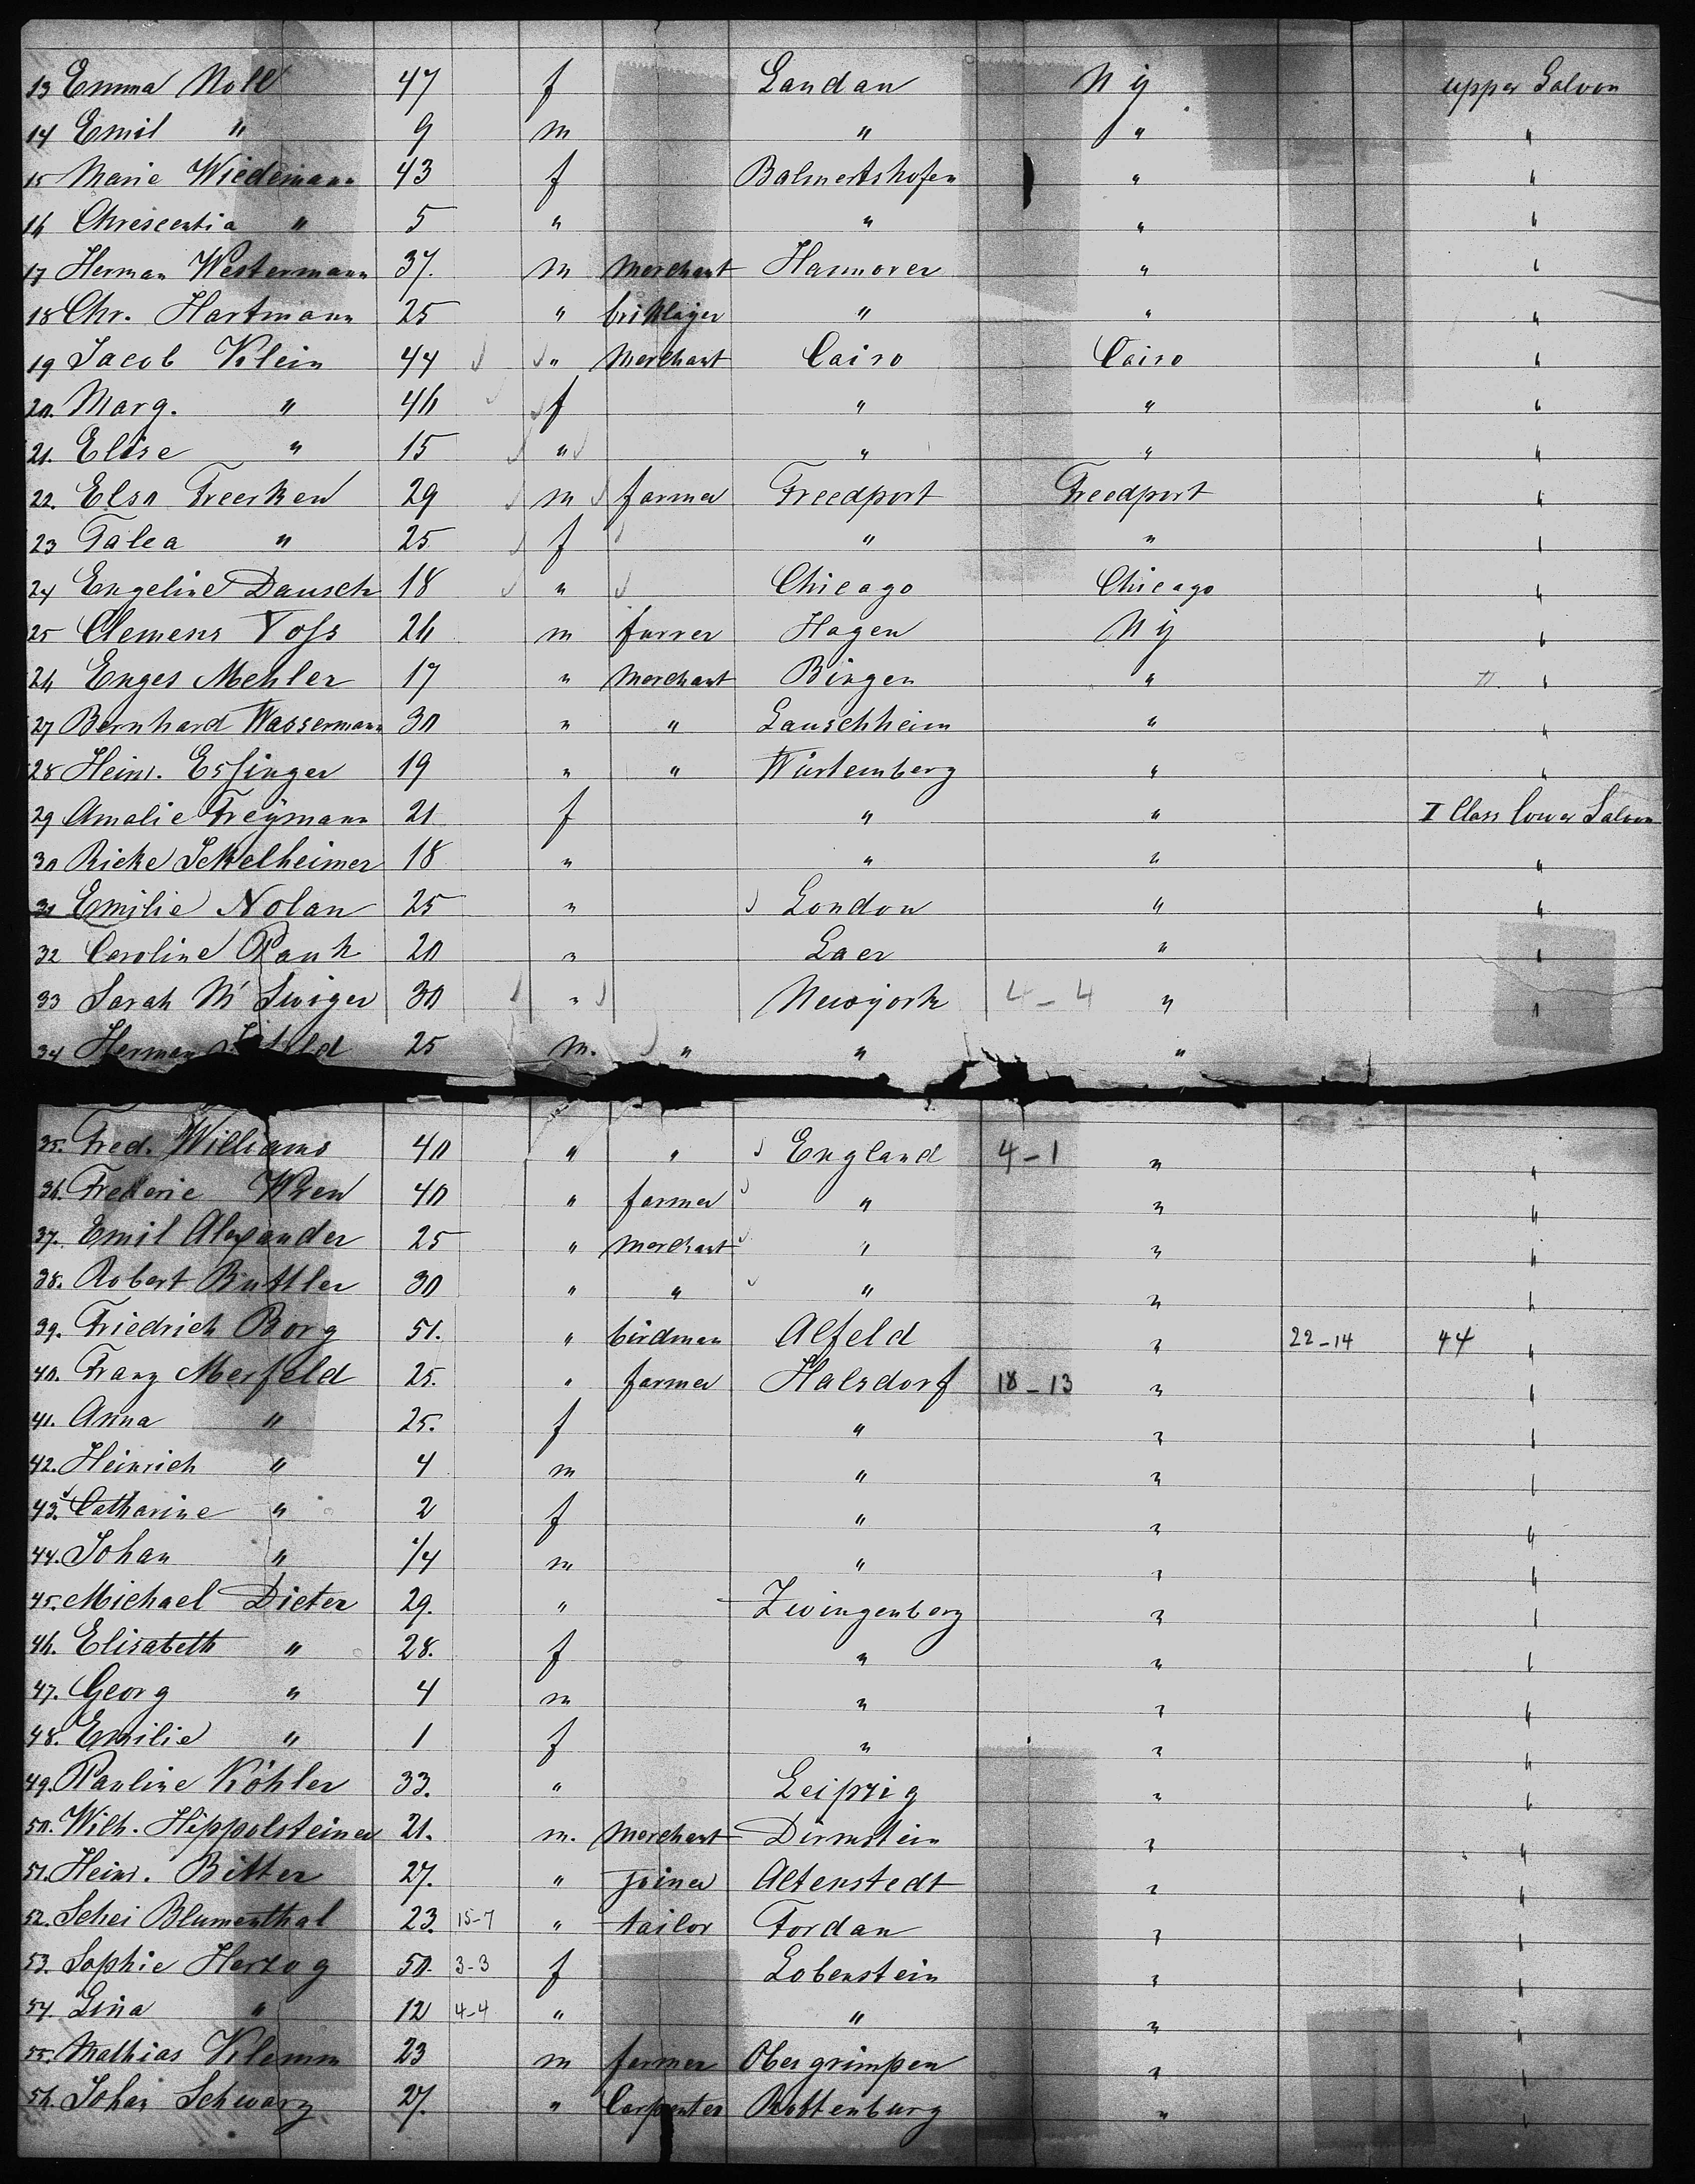 13 Emma Noll 47 f Landau N y upper Saloon
14 Emil " 9 m " " "
15 Marie Wiedemann 43 f Balmertshofen " "
16 Chrescentia " 5 " " " "
17 Herman Westermann 37. m Merchant Hannover " "
18 Chr. Hartmann 25 " " " "
19 Jacob Klein 44 " Merchant Cairo Cairo "
20. Marg. " 46 f " " "
21. Elise " 15 " " " "
22. Elsn Freerken 29 m farmer Freedport Freedport "
23 Talea " 25 f " " "
24 Engeline Dausch 18 " Chicago Chicago "
25 Clemens Voss 26 m furrer Hagen N y "
26 Enges Mehler 17 " Merchant Bingen " "
27 Bernhard Wassermann 30 " " Lauschheim " "
28 Heinr. Essinger 19 " " Würtemberg " "
29 Amalie Freymann 21 f " " I Class lower Saloon
30 Ricke Sckelheimer 18 " " " "
31 Emilie Nolan 25 " London " "
32 Caroline Rauh 20 " Laer " "
33 Sarah Mc Swiger 30 " Newyork 4-4 " "
34 Herman 25 m. " " "
35. Fred. Williams 40 " " England 4-1 " "
36. Frederic Wren 40 " farmer " " "
37. Emil Alexander 25 " Merchant " " "
38. Robert Buttler 30 " " " " "
39. Friedrich Borg 51. " birdman Alfeld " 22-14 44 "
40. Franz Merfeld 25. " farmer Halsdorf 18-13 " "
41. Anna " 25. f " " "
42. Heinrich " 4 m " " "
43. Catharine " 2 f " " "
44. Johan " 1/4 m " " "
45. Michael Dieter 29. " Zwingenberg " "
46. Elisabeth " 28. f " " "
47. Georg " 4 m " " "
48. Emilie " 1 f " " "
49. Pauline Köhler 33. " Leipzig " "
50. Wilh. Hippolsteiner 21. m. Merchant Dirmstein " "
51. Heinr. Bitter 27. " Joiner Altenstedt " "
52. Schei Blumenthal 23. 15-7 " tailor Fordan " "
53. Sophie Herzog 50. 3-3 f Lobenstein " "
54. Lina " 12 4-4 " " " "
55. Mathias Klemm 23 m farmer Obergrimpen " "
56. Johan Schwarz 27. " Carpenter Rottenburg " "